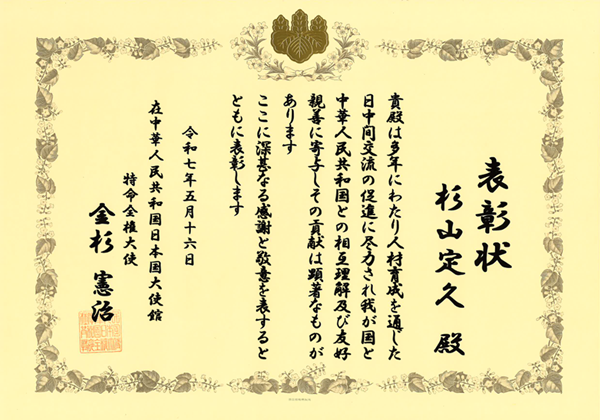 表彰状
杉山定久 殿
貴殿は多年にわたり人材育成を通じた
日中間交流の促進に尽力され我が国と
中華人民共和国との相互理解及び友好
親善に寄与しその貢献は顕著なものが
あります
ここに深甚なる感謝と敬意を表すると
ともに表彰します
令和七年五月十六日
在中華人民共和国日本国大使館
特命全権大使
金杉 憲治